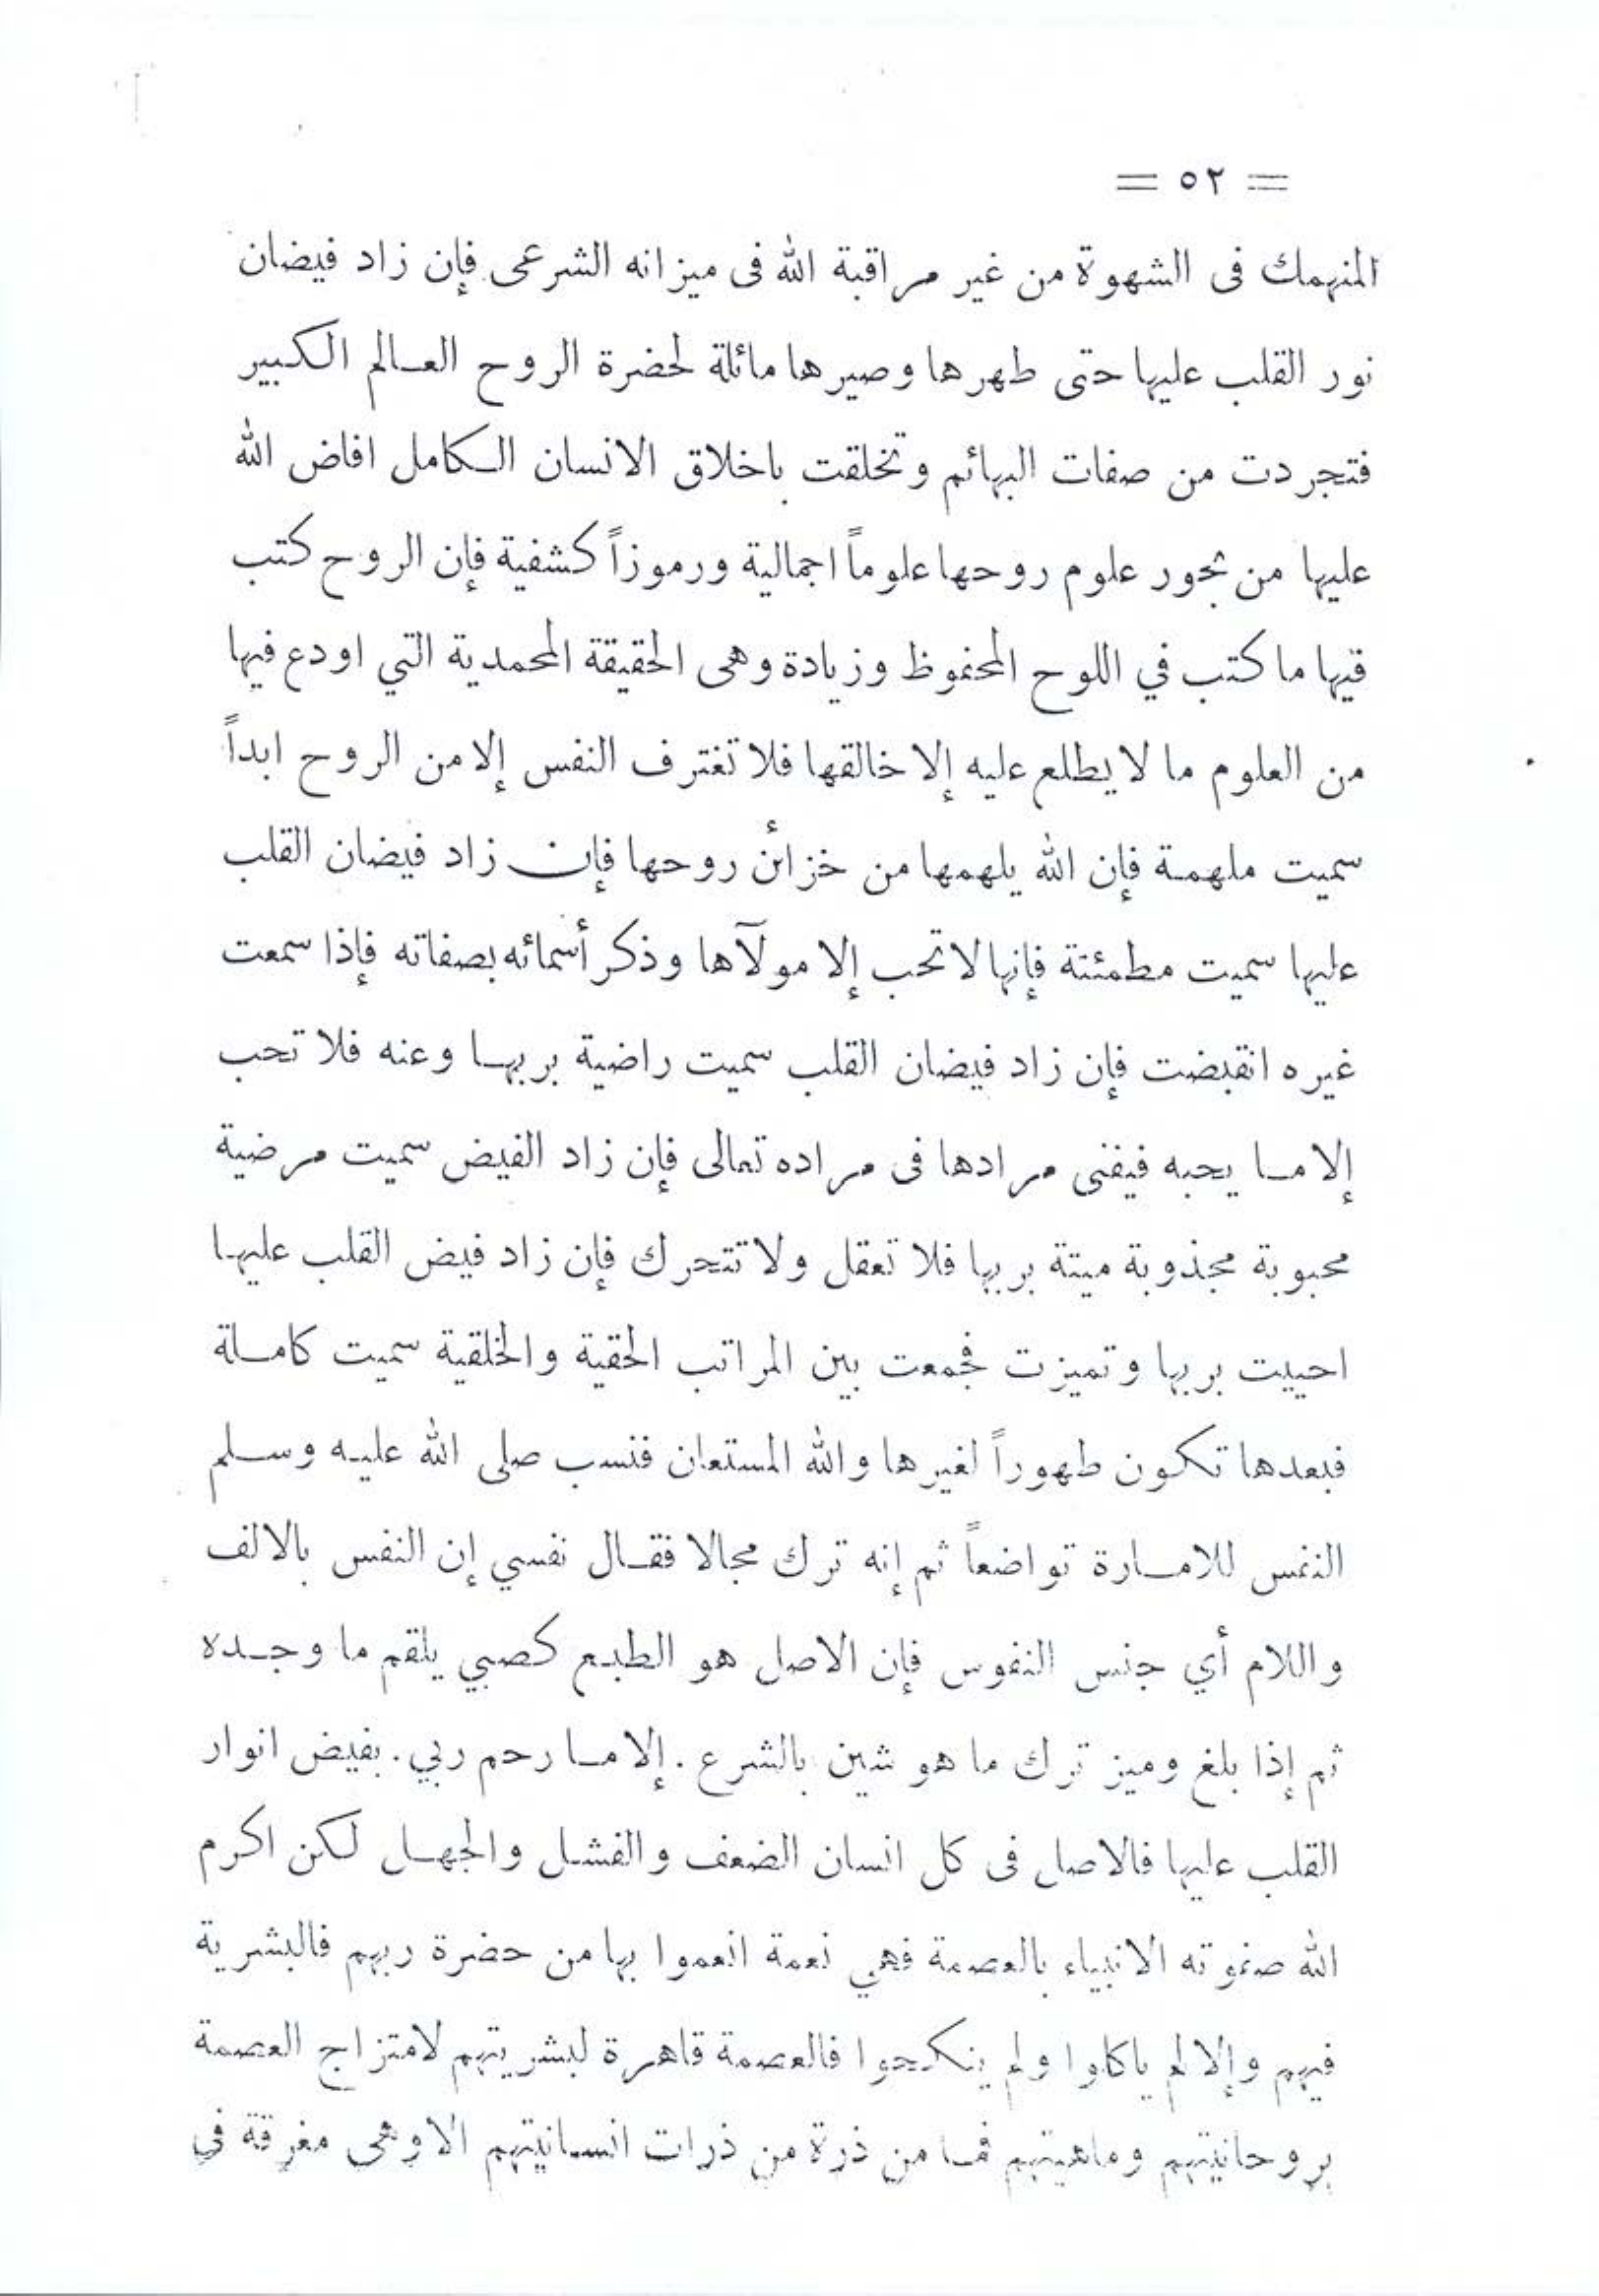 = ٥٢ =
المنهمك فى الشهوة من غير مراقبة الله فى ميزانه الشرعى فإن زاد فيضان
نور القلب عليها حتى طهرها وصيرها مائلة لحضرة الروح العالم الكبير
فتجردت من صفات البهائم وتخلقت باخلاق الانسان الكامل افاض الله
عليها من بحور علوم روحها علوماً اجمالية ورموزاً كشفية فإن الروح كتب
فيها ما كتب في اللوح المحفوظ وزيادة وهى الحقيقة المحمدية التي اودع فيها
من العلوم ما لا يطلع عليه إلا خالقها فلا تغترف النفس إلا من الروح ابداً
سميت ملهمة فإن الله يلهمها من خزائن روحها فإن زاد فيضان القلب
عليها سميت مطمئنة فإنها لا تحب إلا مولآها وذكر أسمائه بصفاته فإذا سمعت
غيره انقبضت فإن زاد فيضان القلب سميت راضية بربها وعنه فلا تحب
إلا ما يحبه فيفنى مرادها فى مراده تعالى فإن زاد الفيض سميت مرضية
محبوبة مجذوبة ميتة بربها فلا تعقل ولا تتحرك فإن زاد فيض القلب عليها
احييت بربها وتميزت فجمعت بين المراتب الحقية والخلقية سميت كاملة
فبعدها تكون طهوراً لغيرها والله المستعان فنسب صلى الله عليه وسلم
النفس للامارة تواضعاً ثم إنه ترك مجالا فقال نفسي إن النفس بالالف
واللام أي جنس النفوس فإن الاصل هو الطبع كصبي يلقم ما وجده
ثم إذا بلغ وميز ترك ما هو شين بالشرع . إلا ما رحم ربي . بفيض انوار
القلب عليها فالاصل فى كل انسان الضعف والفشل والجهل لكن اكرم
الله صفوته الانبياء بالعصمة فهي نعمة انعموا بها من حضرة ربهم فالبشرية
فيهم وإلا لم ياكلوا ولم ينكحوا فالعصمة قاهرة لبشريتهم لامتزاج العصمة
بروحانيتهم وماهيتهم فما من ذرة من ذرات انسانيتهم الا وهى مغرقة في